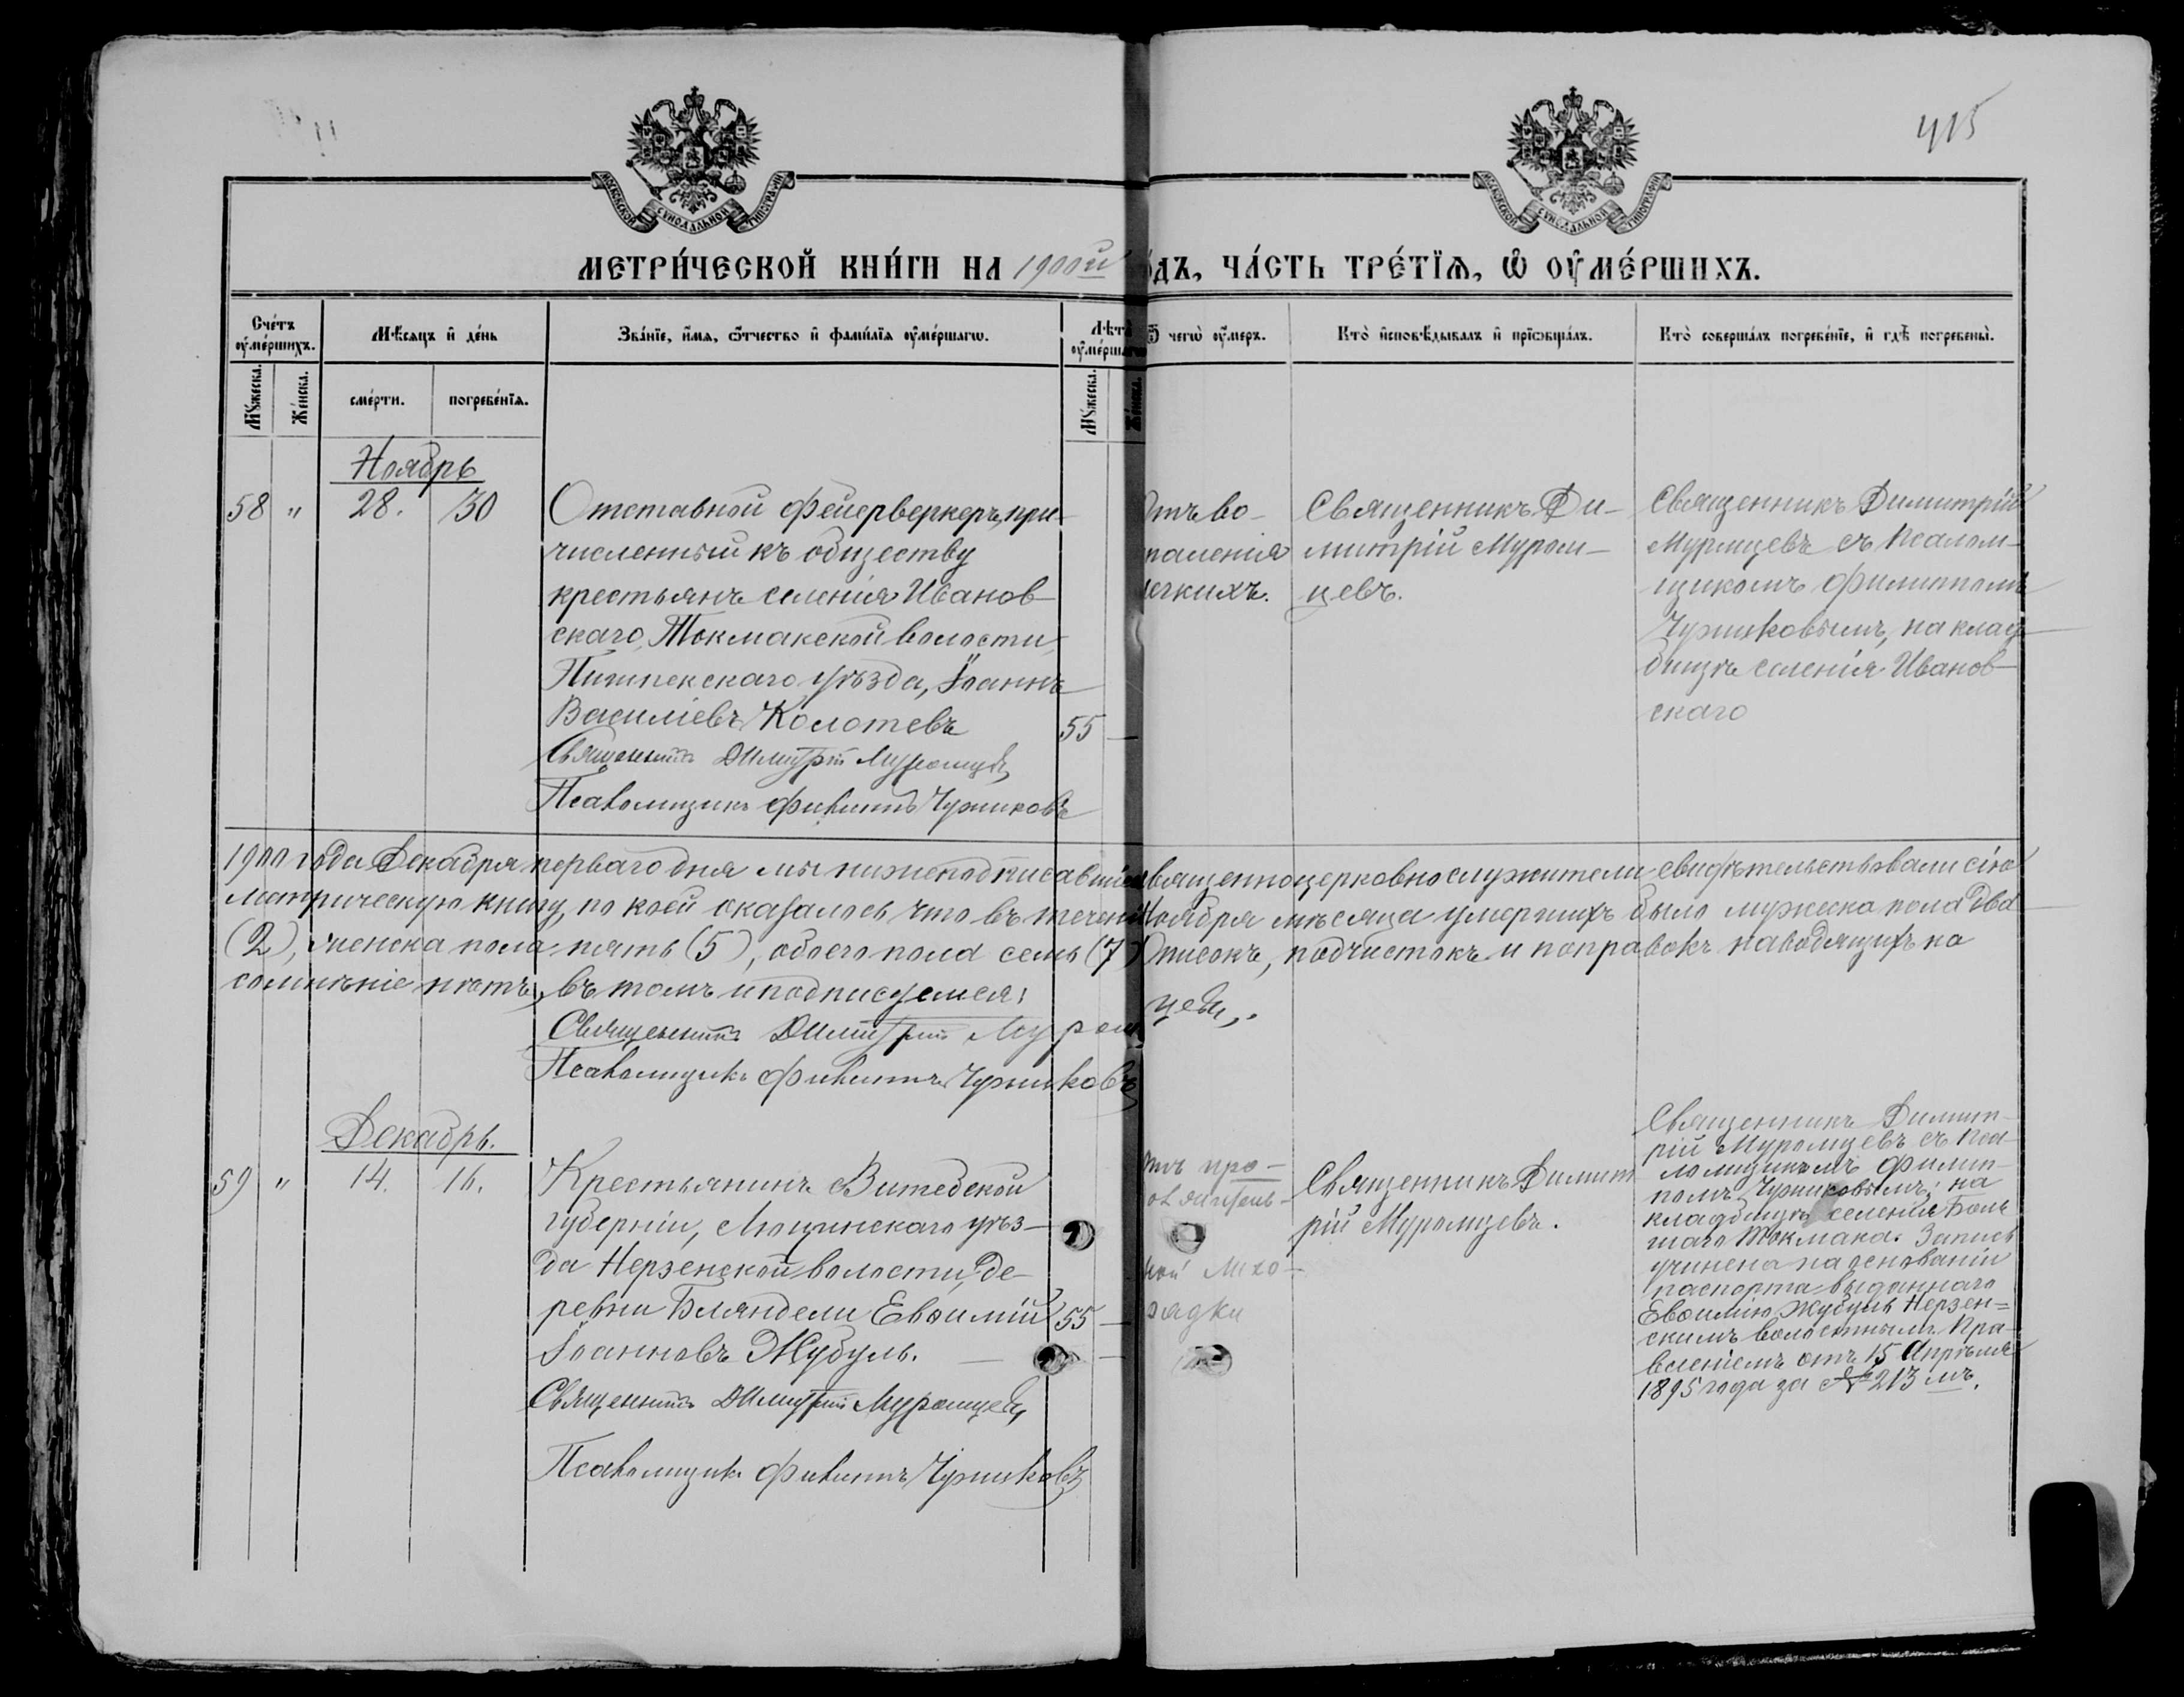 415
МОСКОВСКОЙ СѴНОДАЛЬНОЙ ТИПОГРАФІИ
МОСКОВСКОЙ СѴНОДАЛЬНОЙ ТИПОГРАФІИ
МЕТРИ́ЧЕСКОЙ КНИ́ГИ НА 1900й
О́ДЪ, ЧА́СТЬ ТРЕ́ТЇѦ, Ѡ҆ ОУ҆МЕ́РШИХЪ.
Сче́тъ оу҆ме́ршихъ.
Мѣ́сѧцъ и҆ де́нь
Зва́нїе, и҆́мѧ, ѻ҆́тчество и҆ фами́лїѧ оу҆ме́ршагѡ.
Лѣ́та оу҆ме́ршагѡ
Ѿ чегѡ̀ оу҆́меръ.
Кто̀ и҆сповѣ́дывалъ и҆ прїѡбща́лъ.
Кто̀ соверша́лъ погребе́нїе, и҆ гдѣ̀ погребены̀.
Мꙋ́жеска.
Же́нска.
сме́рти.
погребе́нїѧ.
Мꙋ́жеска.
Же́нска.
Ноябрь
58 " 28. 30
Отставной фейерверкеръ, при-
численный къ обществу
крестьянъ селенія Иванов-
скаго, Токмакской волости,
Пишпекскаго уѣзда, Іоаннъ
Василіевъ Колотевъ 55 —
Священникъ Димитрій Муромцевъ
Псаломщикъ Филиппъ Чуриковъ
Отъ во-
паленія
легкихъ.
Священникъ Ди-
митрій Муром-
цевъ.
Священникъ Димитрій
Муромцевъ съ псалом-
щикомъ Филиппомъ
Чуриковымъ, на клад-
бищѣ селенія Иванов-
скаго
1900 года Декабря перваго дня мы нижеподписавшіеся священноцерковнослужители свидѣтельствовали сію
метрическую книгу, по коей оказалось что въ теченіи Ноября мѣсяца умершихъ было мужеска пола два
(2), женска пола пять (5), обоего пола семь (7) Описокъ, подчистокъ и поправокъ наводящихъ на
сомнѣніе нѣтъ, въ томъ и подписуемся:
Священникъ Димитрій Муромцевъ,.
Псаломщикъ Филиппъ Чуриковъ
Декабрь.
59 " 14. 16.
Крестьянинъ Витебской
губерніи, Люцинскаго уѣз-
да Нерзенской волости, де-
ревни Бляндели Евѳимій 55 —
Іоанновъ Жубуль. —
Священникъ Димитрій Муромцевъ
Псаломщикъ Филиппъ Чуриковъ
Отъ про-
должитель-
ной лихо-
радки
Священникъ Димит
рій Муромцевъ.
Священникъ Димит-
рій Муромцевъ съ пса-
ломщикомъ Филип-
помъ Чуриковымъ; на
кладбищѣ селенія Боль
шаго Токмака. Запись
учинена на основаніи
паспорта выданнаго
Евѳимію Жубуль Нерзен=
скимъ волостнымъ Пра-
вленіемъ отъ 15 Апрѣля
1895 года за № 213 мъ.